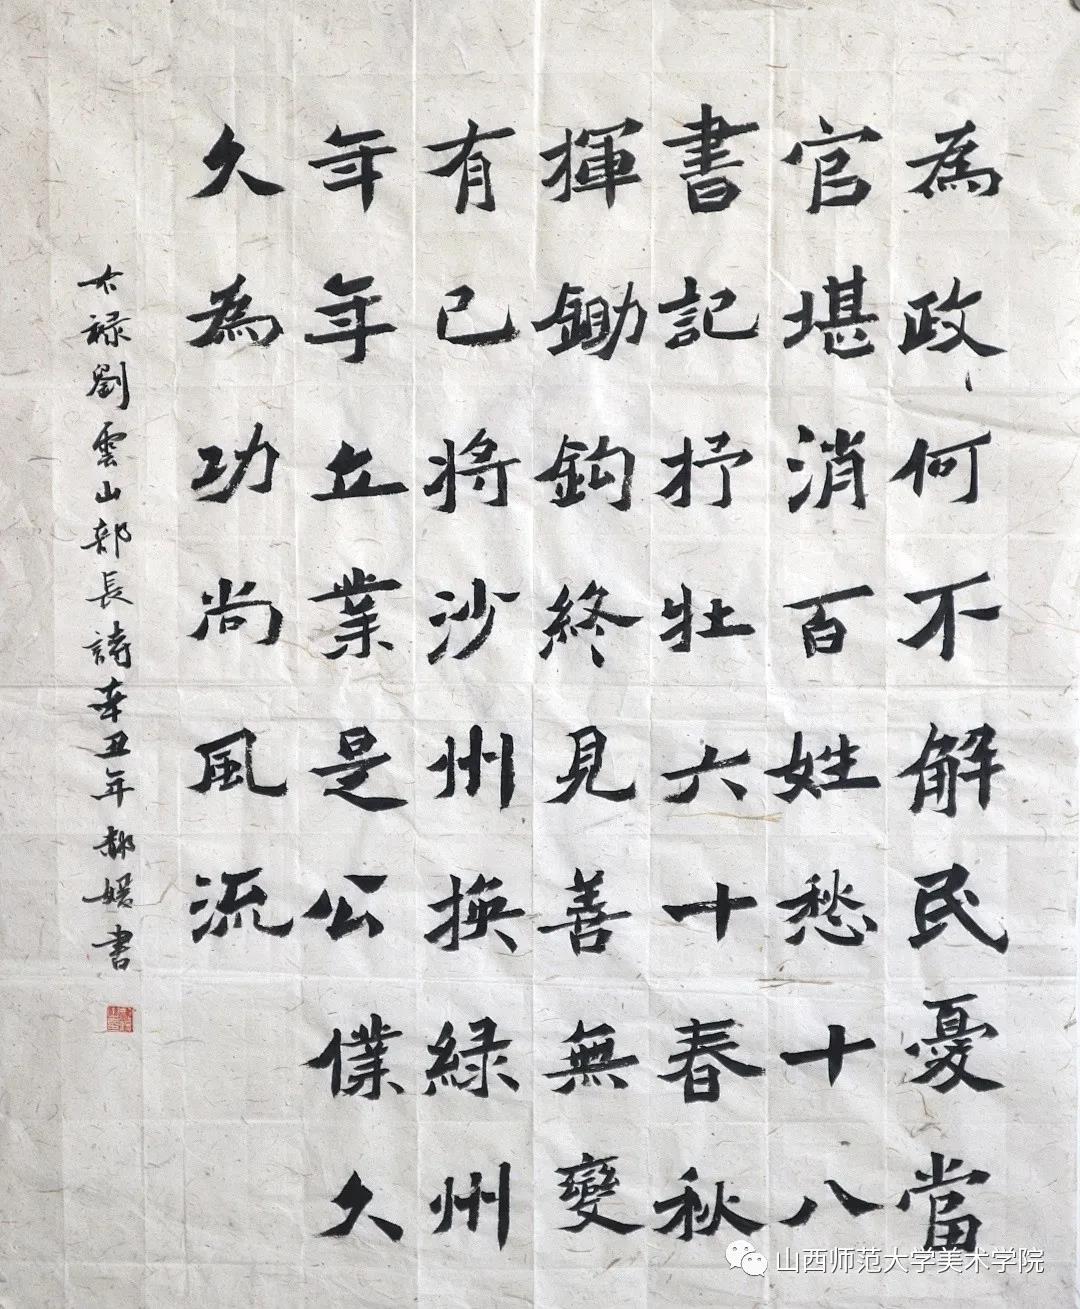 為政何不解民憂當
官堪消百姓愁十八
書記抒壯六十春秋
揮鋤鈎終見善無變
有已將沙州換綠州
年年立業是公僕久
久為功尚風流
右禄劉雲山部長詩辛丑年郝媛書
山西师范大学美术学院